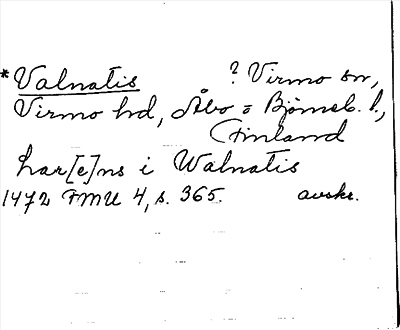 *Valnatis ? Virmo sn,
Virmo hd, Åbo = Björneb. l.,
Finland
har[e]ns i Walnatis
1472 FMU 4, s. 365. avskr.